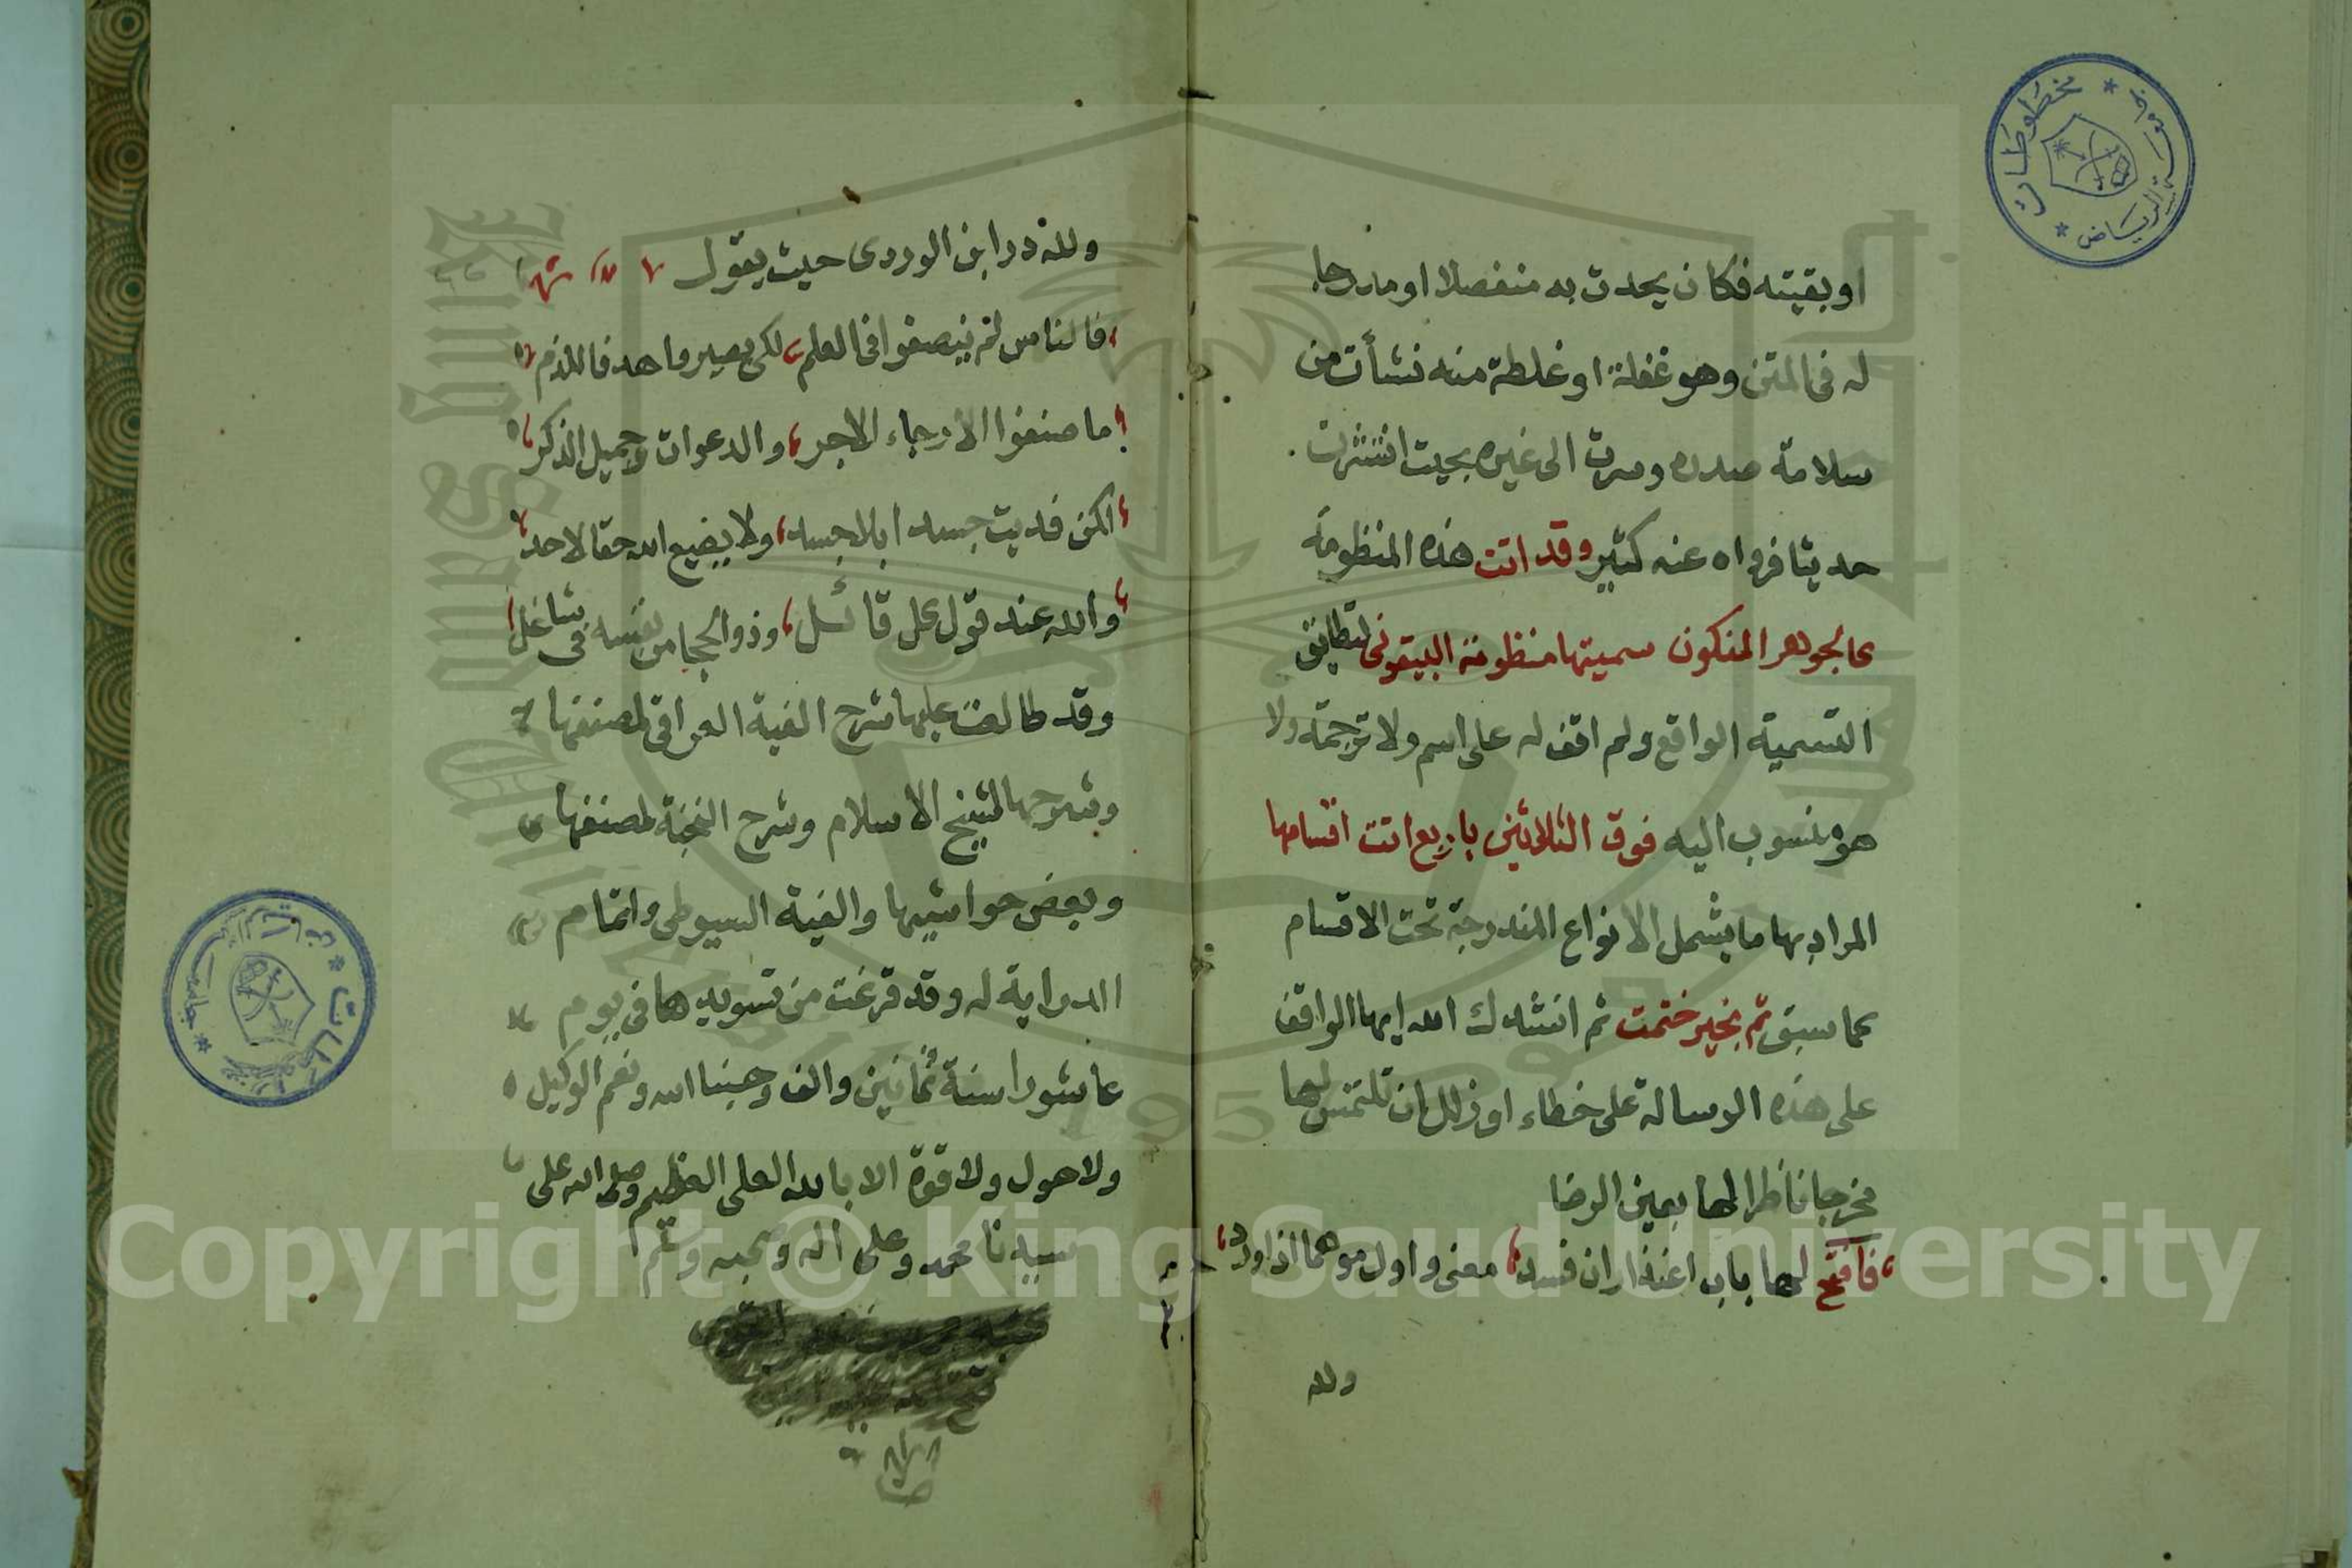 او بقيته فكان يحدث به منفصلا او مدرجا
له فى المتن وهو غفلة او غلطة منه نشأت من
سلامة صدره وسرت الى غيره بحيث انتشرت
حديثا فرواه عنه كثير وقد اتت هذه المنظومة
كالجوهر المنكون سميتها منظومة البيقونى لتطابق
التسمية الواقع ولم اقف له على اسم ولا ترجمة ولا
هو منسوب اليه فوق الثلاثين باربع اتت اقسامها
المراد بها ما يشمل الانواع المندرجة تحت الاقسام
كما سبق ثم بخير ختمت ثم انشدك الله ايها الواقف
على هذه الرسالة على خطاء او زلل ان تلتمس لها
مخرجا ناظرا لها بعين الرضا
فافتح لها باب اعتذار ان فسد معنى واول موهما اذا ورد
ولله
ولله در ابن الوردى حيث يقول
فالناس لم يصنفوا فى العلم لكى يصيروا هدفا للذم
ما صنفوا الا رجاء الاجر والدعوات وجميل الذكر
لكن فديت جسدا بلا جسد ولا يضيع الله حقا لاحد
والله عند قول كل قائل وذو الحجا من نفسه فى شاغل
وقد طالعت عليها شرح الفية العراقى لمصنفها
وشرحها لشيخ الاسلام وشرح النخبة لمصنفها
وبعض حواشيها والفية السيوطى واتمام
الدراية له وقد فرغت من تسويدها فى يوم
عاشورا سنة ثمانين والف وحسبنا الله ونعم الوكيل
ولا حول ولا قوة الا بالله العلى العظيم وصلى الله على
سيدنا محمد وعلى اله وصحبه وسلم
مخطوطات
Copyright © King Saud University
195